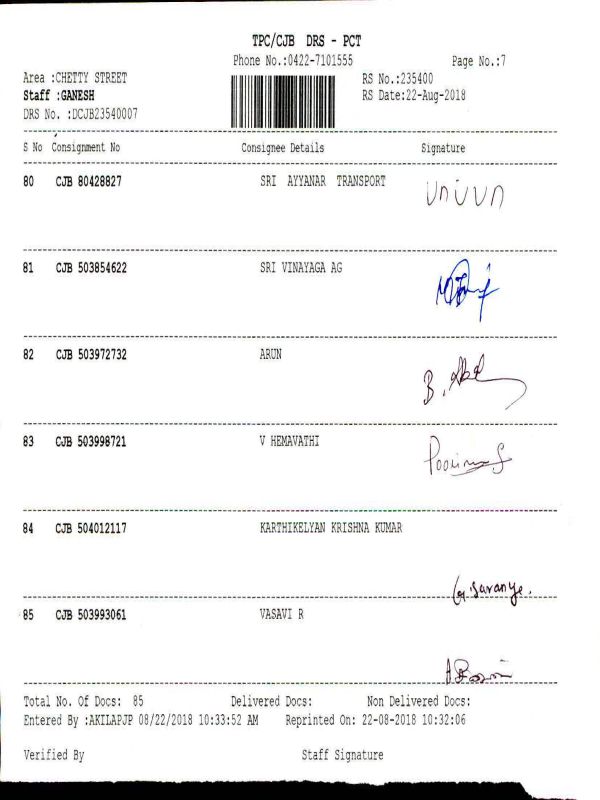 TPC/CJB DRS - PCT
Phone No.:0422-7101555 Page No.:7
Area :CHETTY STREET RS No.:235400
Staff :GANESH RS Date:22-Aug-2018
DRS No. :DCJB23540007
S No Consignment No Consignee Details Signature
80 CJB 80428827 SRI AYYANAR TRANSPORT
81 CJB 503854622 SRI VINAYAGA AG
82 CJB 503972732 ARUN
B.
83 CJB 503998721 V HEMAVATHI
84 CJB 504012117 KARTHIKELYAN KRISHNA KUMAR
G. Saranya.
85 CJB 503993061 VASAVI R
Total No. Of Docs: 85 Delivered Docs: Non Delivered Docs:
Entered By :AKILAPJP 08/22/2018 10:33:52 AM Reprinted On: 22-08-2018 10:32:06
Verified By Staff Signature